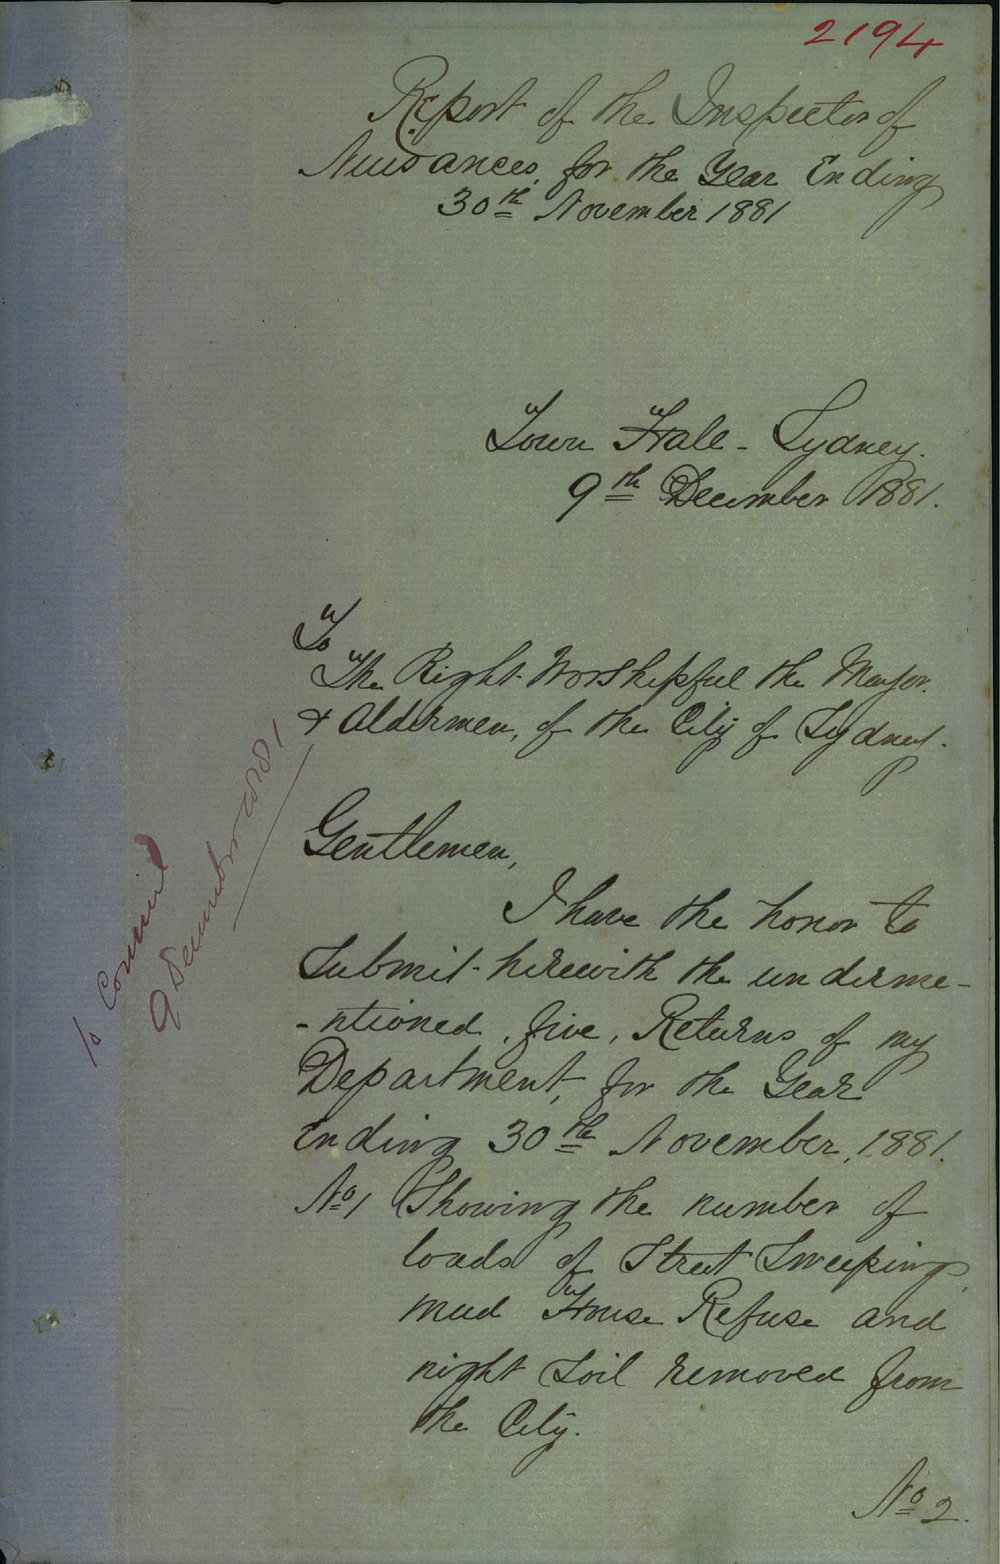 2194
Report of the Inspector of
Nuisances, for the Year Ending
30th November 1881
Town Hall - Sydney.
9th December 1881.
To
The Right Worshipful the Mayor.
& Aldermen, of the City of Sydney.
To Council
9 December 1881
Gentlemen,
I have the honor to
Submit herewith the underme-
-ntioned, five, Returns of my
Department, for the Year
Ending 30th November, 1881.
No 1 Showing the number of
loads of Street Sweeping,
mud House Refuse and
night Soil removed from
the City.
No 2.